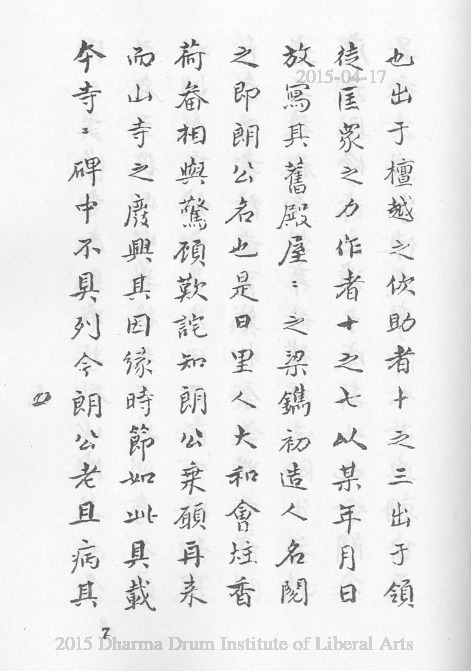 也出于檀越之佽助者十之三出于領
徒匡眾之力作者十之七以某年月日
放寫其舊殿屋〻之梁鐫初造人名閱
之即朗公名也是日里人大和會炷香
荷畚相與驚顧歎詫知朗公乗願再来
而山寺之廢興其因緣時節如此具載
夲寺〻碑中不具列今朗公老且病其
7
2015-04-17
2015 Dharma Drum Institute of Liberal Arts